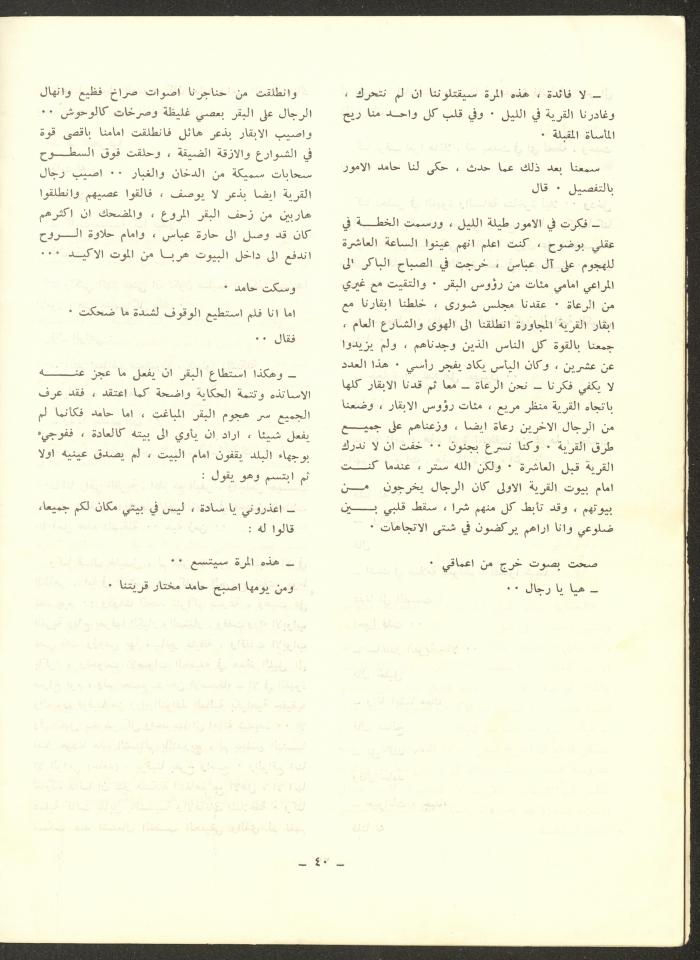 ـ لا فائدة ، هذه المرة سيقتلوننا ان لم نتحرك ،
وغادرنا القرية في الليل ٠ وفي قلب كل واحـد منا ريح
المأساة المقبلة ٠
سمعنا بعد ذلك عما حدث ، حكى لنا حامد الامور
بالتفصيل ٠ قال
ـ فكرت في الامور طيلة الليل ، ورسمت الخطـة في
عقلي بوضوح ، كنت اعلم انهم عينوا الساعة العاشرة
للهجوم على آل عباس ، خرجت في الصباح الباكر الى
المراعي امامي مئات من رؤوس البقر ٠ والتقيت مع غيري
من الرعاة ٠ عقدنا مجلس شورى ، خلطنا ابقارنا مع
ابقار القرية المجاورة انطلقنا الى الهوى والشارع العام ،
جمعنا بالقوة كل الناس الذين وجدناهم ، ولم يزيدوا
عن عشرين ، وكان اليأس يكاد يفجر رأسي ٠ هذا العدد
لا يكفي فكرنا ـ نحن الرعاة ـ معا ثم قدنا الابقار كلها
باتجاه القرية منظر مريع ، مئات رؤوس الابقار ، وضعنا
من الرجال الاخرين رعاة ايضا ، وزعناهم على جميـــع
طرق القرية ٠ وكنا نسرع بجنون ٠٠ خفت ان لا ندرك
القرية قبل العاشرة ٠ ولكن الله ستر ، عندما كنـــت
امام بيوت القرية الاولى كان الرجال يخرجون مـــن
بيوتهم ، وقد تابط كل منهم شرا ، سقط قلبي بـــين
ضلوعي وانا اراهم يركضون في شتى الاتجاهات ٠
صحت بصوت خرج من اعماقي ٠
ـ هيا يا رجال ٠٠
وانطلقت من حناجرنا اصوات صراخ فظيع وانهال
الرجال على البقر بعصي غليظة وصرخات كالوحوش ٠٠
واصيب الابقار بذعر هائل فانطلقت امامنا باقصى قوة
في الشوارع والازقة الضيقة ، وحلقت فوق السطـوح
سحابات سميكة من الدخان والغبار ٠٠ اصيب رجال
القرية ايضا بذعر لا يوصف ، فالقوا عصيهم وانطلقوا
هاربين من زحف البقر المروع ، والمضحك ان اكثرهم
كان قد وصل الى حارة عباس ، وامام حلاوة الـــروح
اندفع الى داخل البيوت هربـا من الموت الاكيـــد ٠٠٠
وسكت حامد ٠
اما انا فلم استطيع الوقوف لشدة ما ضحكت ٠
فقال ٠٠
ـ وهكذا استطاع البقر ان يفعل ما عجز عنـــــه
الاساتذه وتتمة الحكاية واضحة كما اعتقد ، فقد عرف
الجميع سر هجوم البقر المباغت ، اما حامد فكانما لم
يفعل شيئا ، اراد ان يأوي الى بيته كالعادة ، ففوجيء
بوجهاء البلد يقفون امام البيت ، لم يصدق عينيه اولا
ثم ابتسم وهو يقول :
ـ اعذروني يا سادة ، ليس في بيتي مكان لكم جميعا،
قالوا له :
ـ هذه المرة سيتسع ٠٠
ومن يومها اصبح حامد مختار قريتنا ٠
ـ ٤٠ ـ